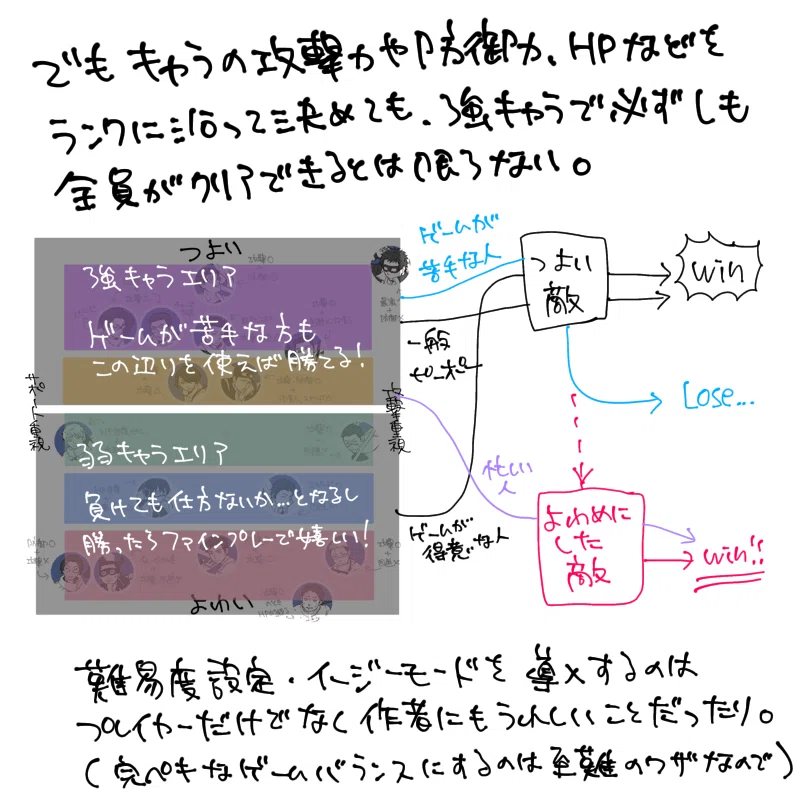 でもキャラの攻撃力や防御力、HPなどを
ランクに沿って決めても、強キャラで必ずしも
全員がクリアできるとは限らない。
つよい
強キャラエリア
ゲームが苦手な方も
この辺りを使えば勝てる!
サポート重視
攻撃重視
弱キャラエリア
負けても仕方ないか…となるし
勝ったらファインプレーで嬉しい!
よわい
ゲームが
苦手な人
一般
ピーポー
忙しい
人
ゲームが
得意な人
つよい
敵
win
Lose...
よわめに
した
敵
win!!
難易度設定・イージーモードを導入するのは
プレイヤーだけでなく作者にもうれしいことだったり。
(完ペキなゲームバランスにするのは至難のワザなので)